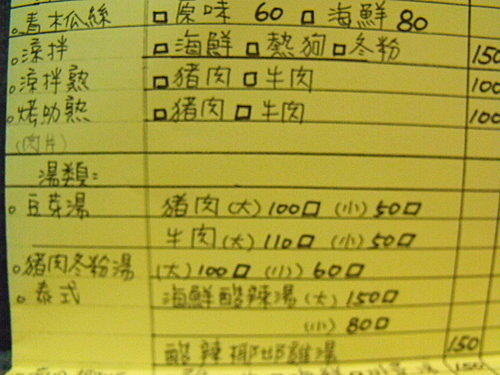 。青木瓜絲 □原味 60 □海鮮 80
。涼拌 □海鮮 □熱狗 □冬粉 150
。涼拌熟 □豬肉 □牛肉 100
。烤肋熟 □豬肉 □牛肉 100
(肉片)
湯類:
。豆芽湯 豬肉(大)100□ (小)50□
牛肉(大)110□ (小)50□
。豬肉冬粉湯 (大)100□ (小)60□
。泰式 海鮮酸辣湯(大)150□
(小)80□
酸辣椰奶雞湯 150